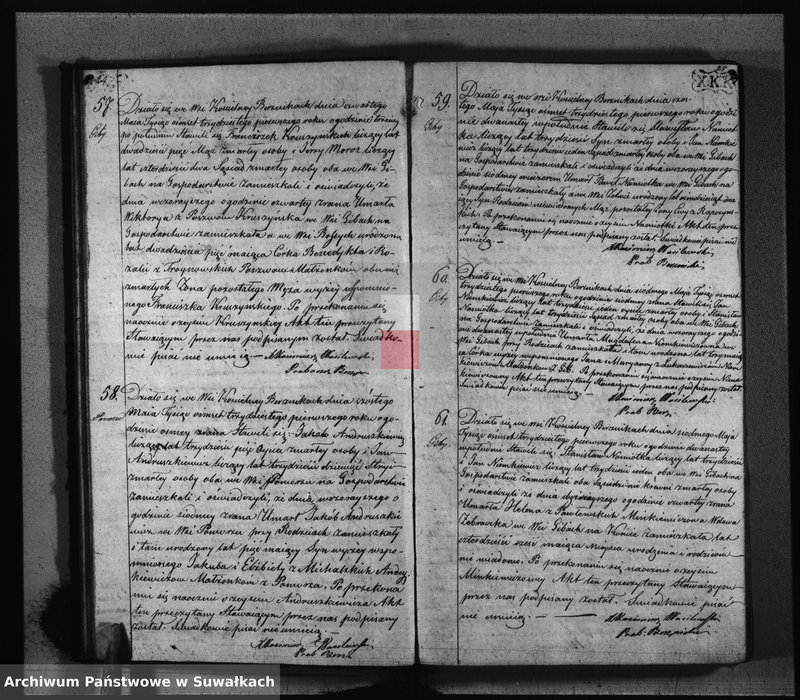 57.
Giby
Działo się we Wsi Kościelney Berznikach dnia czwartego
Maia Tysiąc osmset trzydziestego pierwszego roku ogodzinie
po południu Stawili się Franciszek Kruszyński liczący lat
dwadzieścia pięć Mąż zmarłey osoby i Jerzy Moroz liczący
lat czterdzieści dwa Sąsiad zmarłey osoby oba we Wsi Gi-
bach na Gospodarstwie Zamieszkali i oświadczyli, że
dnia wczorayszego ogodzinie czwartey zrana Umarła
Wiktorya z Kruszyńska we Wsi Gibach na
Gospodarstwie zamieszkała a we Wsi urodzona
lat dwadzieścia pięć maiąca Corka Benedykta i Ro-
zalii z Małżonkow obu iuż
zmarłych Zona pozostałego Męża wyżey wspomnio-
nego Franciszka Kruszyńskiego. Po przekonaniu się
naocznie o zeyściu Kruszyńskiey Akt ten przeczytany
Stawaiącym przez nas podpisanym został. Swiadko-
wie pisać nie umieią —
58.
Pomorze
Działo się we Wsi Kościelney Berznikach dnia szóstego
Maia Tysiąc osmset trzydziestego pierwszego roku ogo-
dzinie osmey zrana Stawili się: Jakub Andruszkiewicz
liczący lat trzydzieści pięć Oyciec zmarłey osoby i Jan
Andruszkiewicz liczący lat trzydzieści dziewięć Stryi
zmarłey osoby oba we Wsi Pomorzu na Gospodarstwie
zamieszkali i oświadczyli, że dnia wczorayszego o
godzinie siodmey zrana Umarł Jakób Andruszkie-
wicz we Wsi Pomorzu przy Rodzicach zamieszkały
i tam urodzony lat pięć maiący Syn wyżey wspo-
mnionego Jakuba i Elżbiety z Michalskich Andru-
kiewiczow Małżonkow z Pomorza. Po przekona-
niu się naocznie o zeyściu Andruszkiewicza Akt
ten przeczytany Stawaiącym przez nas podpisany
został. Swiadkowie pisać nie umieią —
59.
Giby
Działo się we Wsi Kościelney Berznikach dnia szos-
tego Maja Tysiąc osmset trzydziestego pierwszego roku ogodzi-
nie dwunastey w południe Stawili się Stanisław Namiot-
ka liczący lat trzydzieści Syn zmarłey osoby i Jan Niemkie-
wicz liczący lat trzydzieści ieden Sąsiad zmarłey osoby oba we Wsi Gibach
na Gospodarstwie zamieszkali i oświadczyli że dnia wczorayszego ogo-
dzinie siodmey wieczorem Umarł Paweł Namiotka we Wsi Gibach na
Gospodarstwie zamieszkały a we Wsi urodzony lat
cy Syn Rodziców niewiadomych Mąż pozostałey Zony Ewy z
Po przekonaniu się naocznie o zeyściu Namiotki Akt ten prze-
czytany Stawaiącym przez nas podpisany został. Swiadkowie pisać nie
umieią —
60.
Giby
Działo się we Wsi Kościelney Berznikach dnia siodmego Maja Tysiąc osmset
trzydziestego pierwszego roku ogodzinie siodmey zrana Stawili się Jan
Niemkiewicz liczący lat trzydzieści ieden Oyciec zmarłey osoby i Stanisław
Namiotka liczący lat trzydzieści Sąsiad zmarłey osoby oba we Wsi Gibach
na Gospodarstwie zamieszkali i oświadczyli, że dnia wczorayszego ogodzi-
nie Umarła Magdalena Niemkiewiczowna we
Wsi Gibach przy Rodzicach zamieszkała i tam urodzona lat
ca Corka wyżey wspomnionego Jana i Maryanny Niem-
kiewiczow Małżonkow z Gib. Po przekonaniu się naocznie o zeyściu Niem-
kiewiczowny Akt ten przeczytany Stawaiącym przez nas podpisany został.
Swiadkowie pisać nie umieią —
61.
Giby
Działo się we Wsi Kościelney Berznikach dnia siodmego Maja
Tysiąc osmset trzydziestego pierwszego roku ogodzinie dwunastey
w południe Stawili się Stanisław Namiotka liczący lat trzydzieści
i Jan Niemkiewicz liczący lat trzydzieści ieden oba we Wsi Gibach na
Gospodarstwie zamieszkali oba Sąsiedzi zmarłey osoby
i oświadczyli że dnia dzisieyszego ogodzinie czwartey zrana
Umarła Helena z Pawłowskich Minkiewiczowa Wdowa
Żebraczka we Wsi Gibach na zamieszkała lat
czterdzieści sześć maiąca mieysca urodzenia i rodziców
nie wiadomo. Po przekonaniu się naocznie o zeyściu
Minkiewiczowey Akt ten przeczytany Stawaiącym
przez nas podpisany został. Swiadkowie pisać
nie umieią —
Archiwum Państwowe w Suwałkach